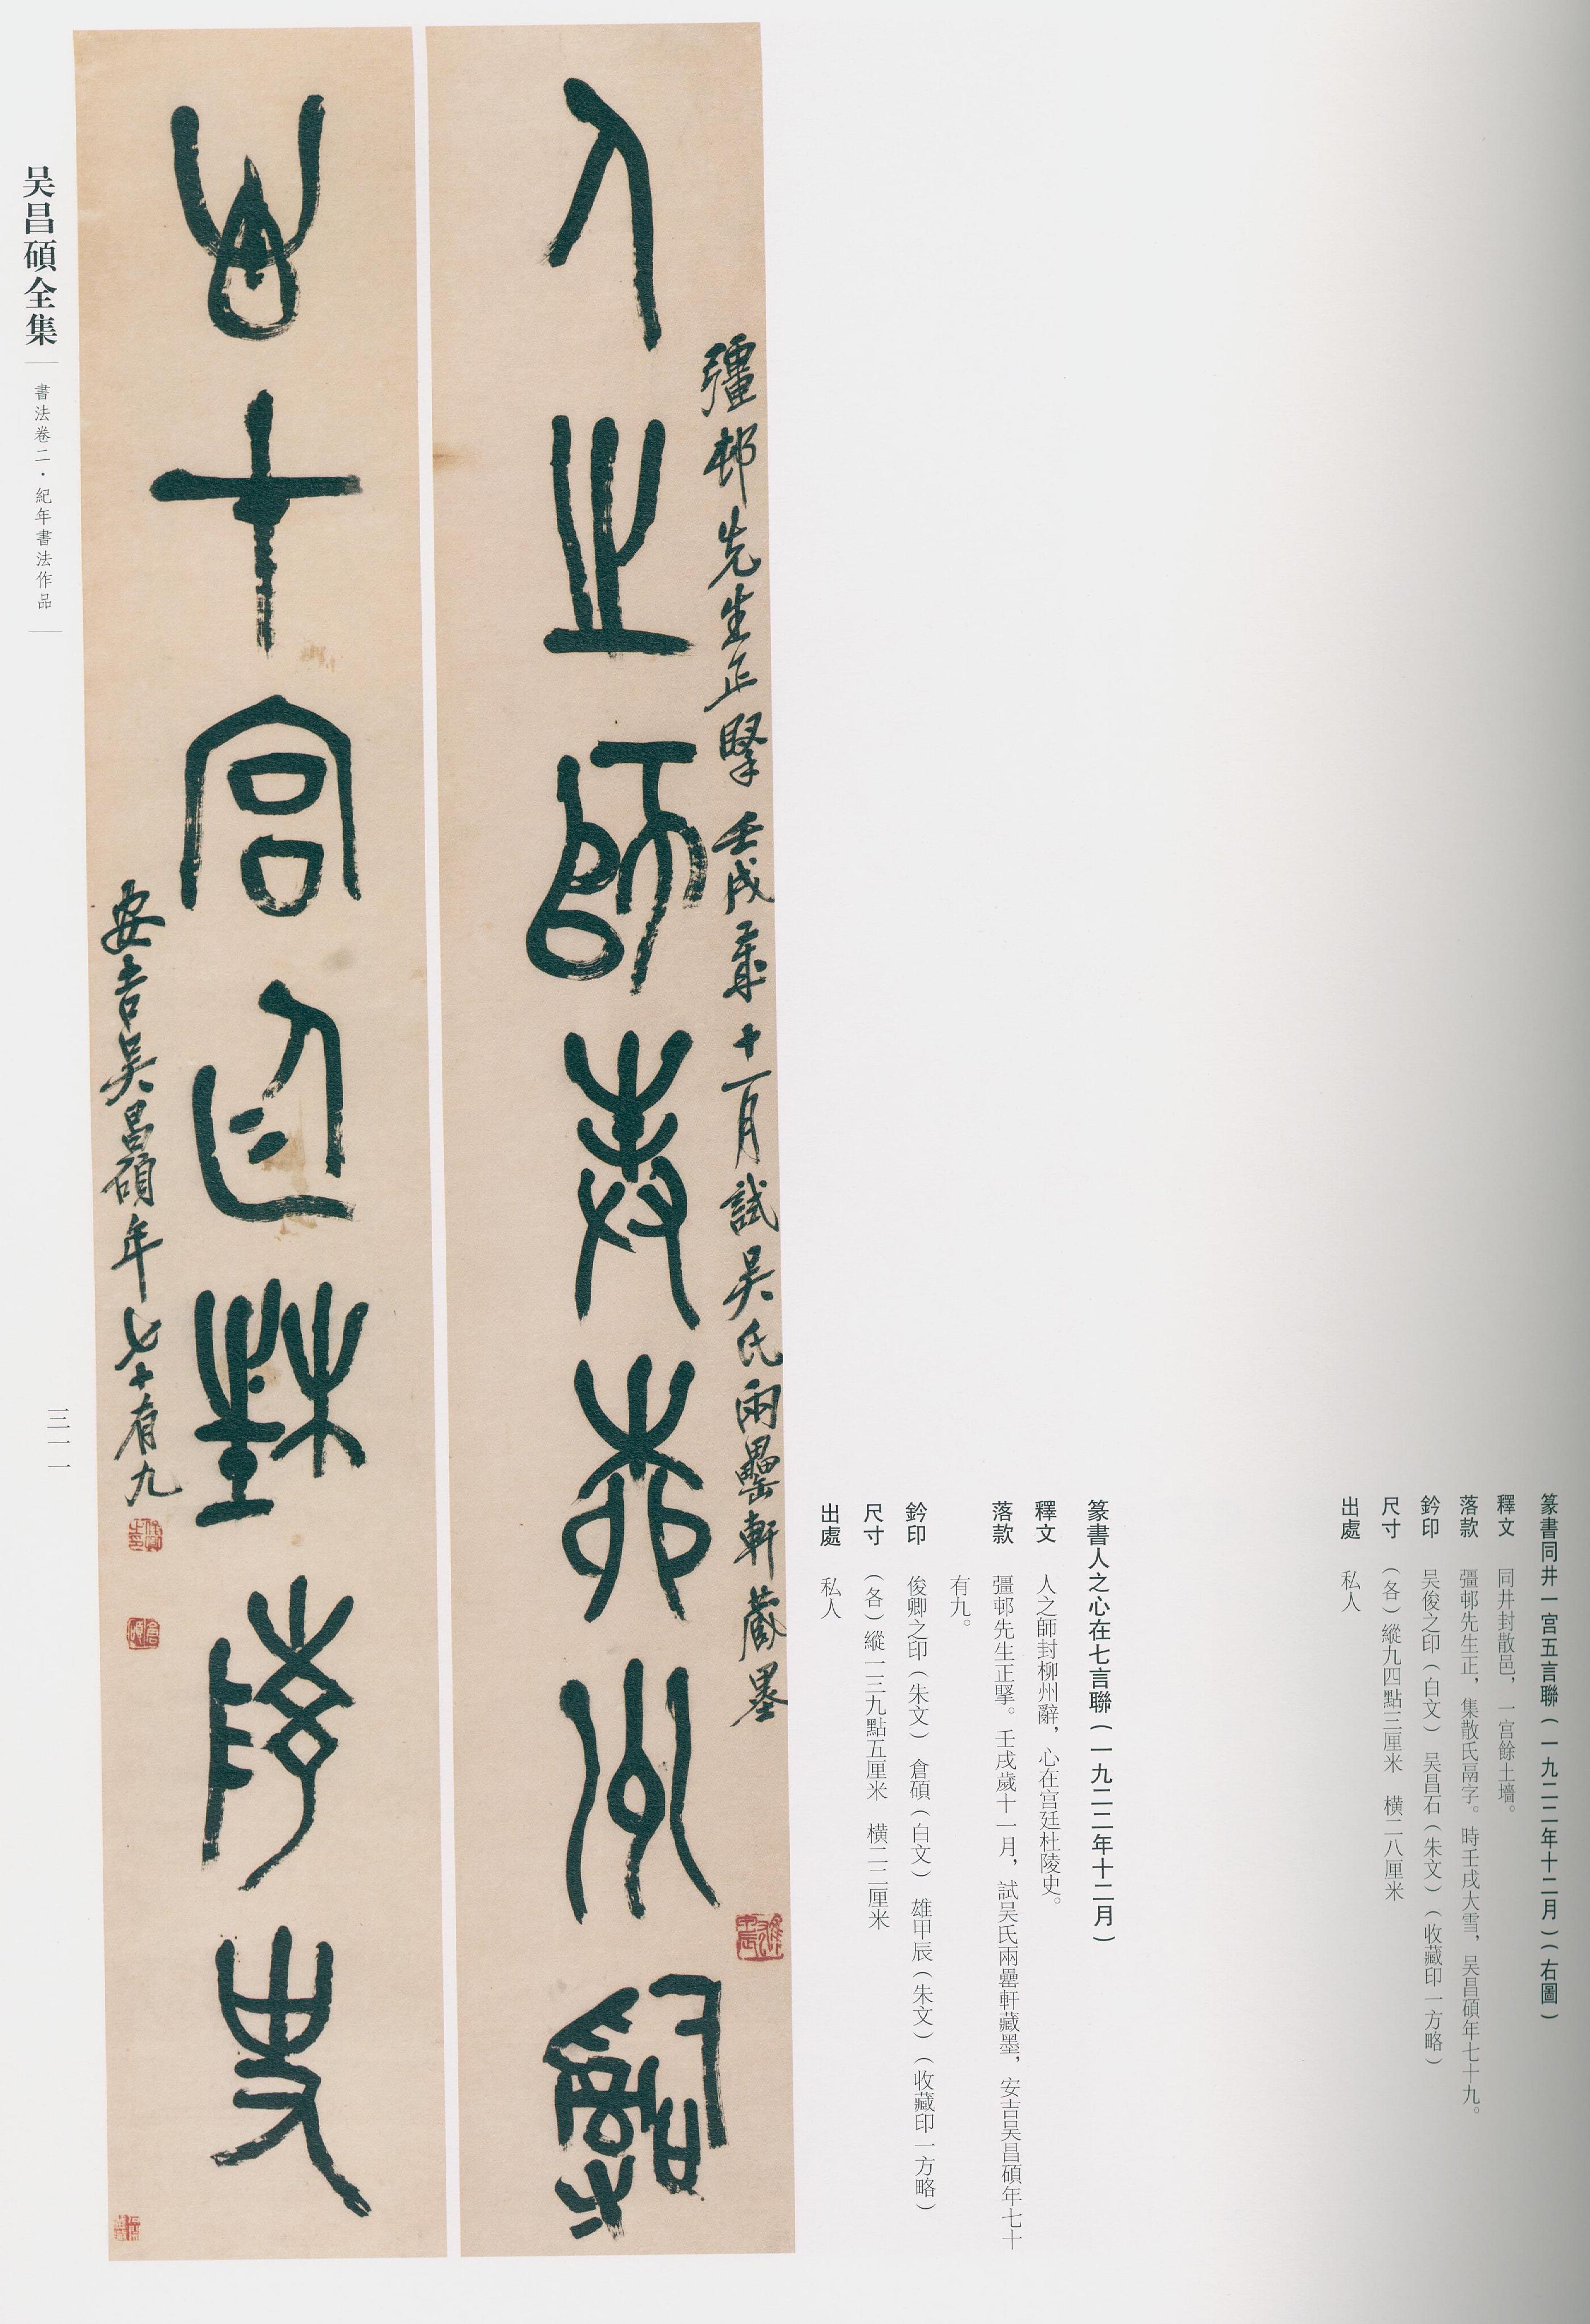 篆書同井一宫五言聯（一九二二年十二月）（右圖）
釋文　同井封散邑，一宫餘土墻。
落款　彊邨先生正，集散氏鬲字。時壬戌大雪，吴昌碩年七十九。
鈐印　吴俊之印（白文）　吴昌石（朱文）（收藏印一方略）
尺寸　（各）縱九四點三厘米　横二八厘米
出處　私人
篆書人之心在七言聯（一九二二年十二月）
釋文　人之師封柳州辭，心在宫廷杜陵史。
落款　彊邨先生正掔。壬戌歲十一月，試吴氏兩罍軒藏墨，安吉吴昌碩年七十
有九。
鈐印　俊卿之印（朱文）　倉碩（白文）　雄甲辰（朱文）（收藏印一方略）
尺寸　（各）縱一三九點五厘米　横二二厘米
出處　私人
彊邨先生正掔壬戌歲十一月試吴氏兩罍軒藏墨
雄甲辰
人之師封柳州辭
心在宫廷杜陵史
安吉吴昌碩年七十有九
俊卿之印
倉碩
吴昌碩全集
書法卷二·紀年書法作品
三一一